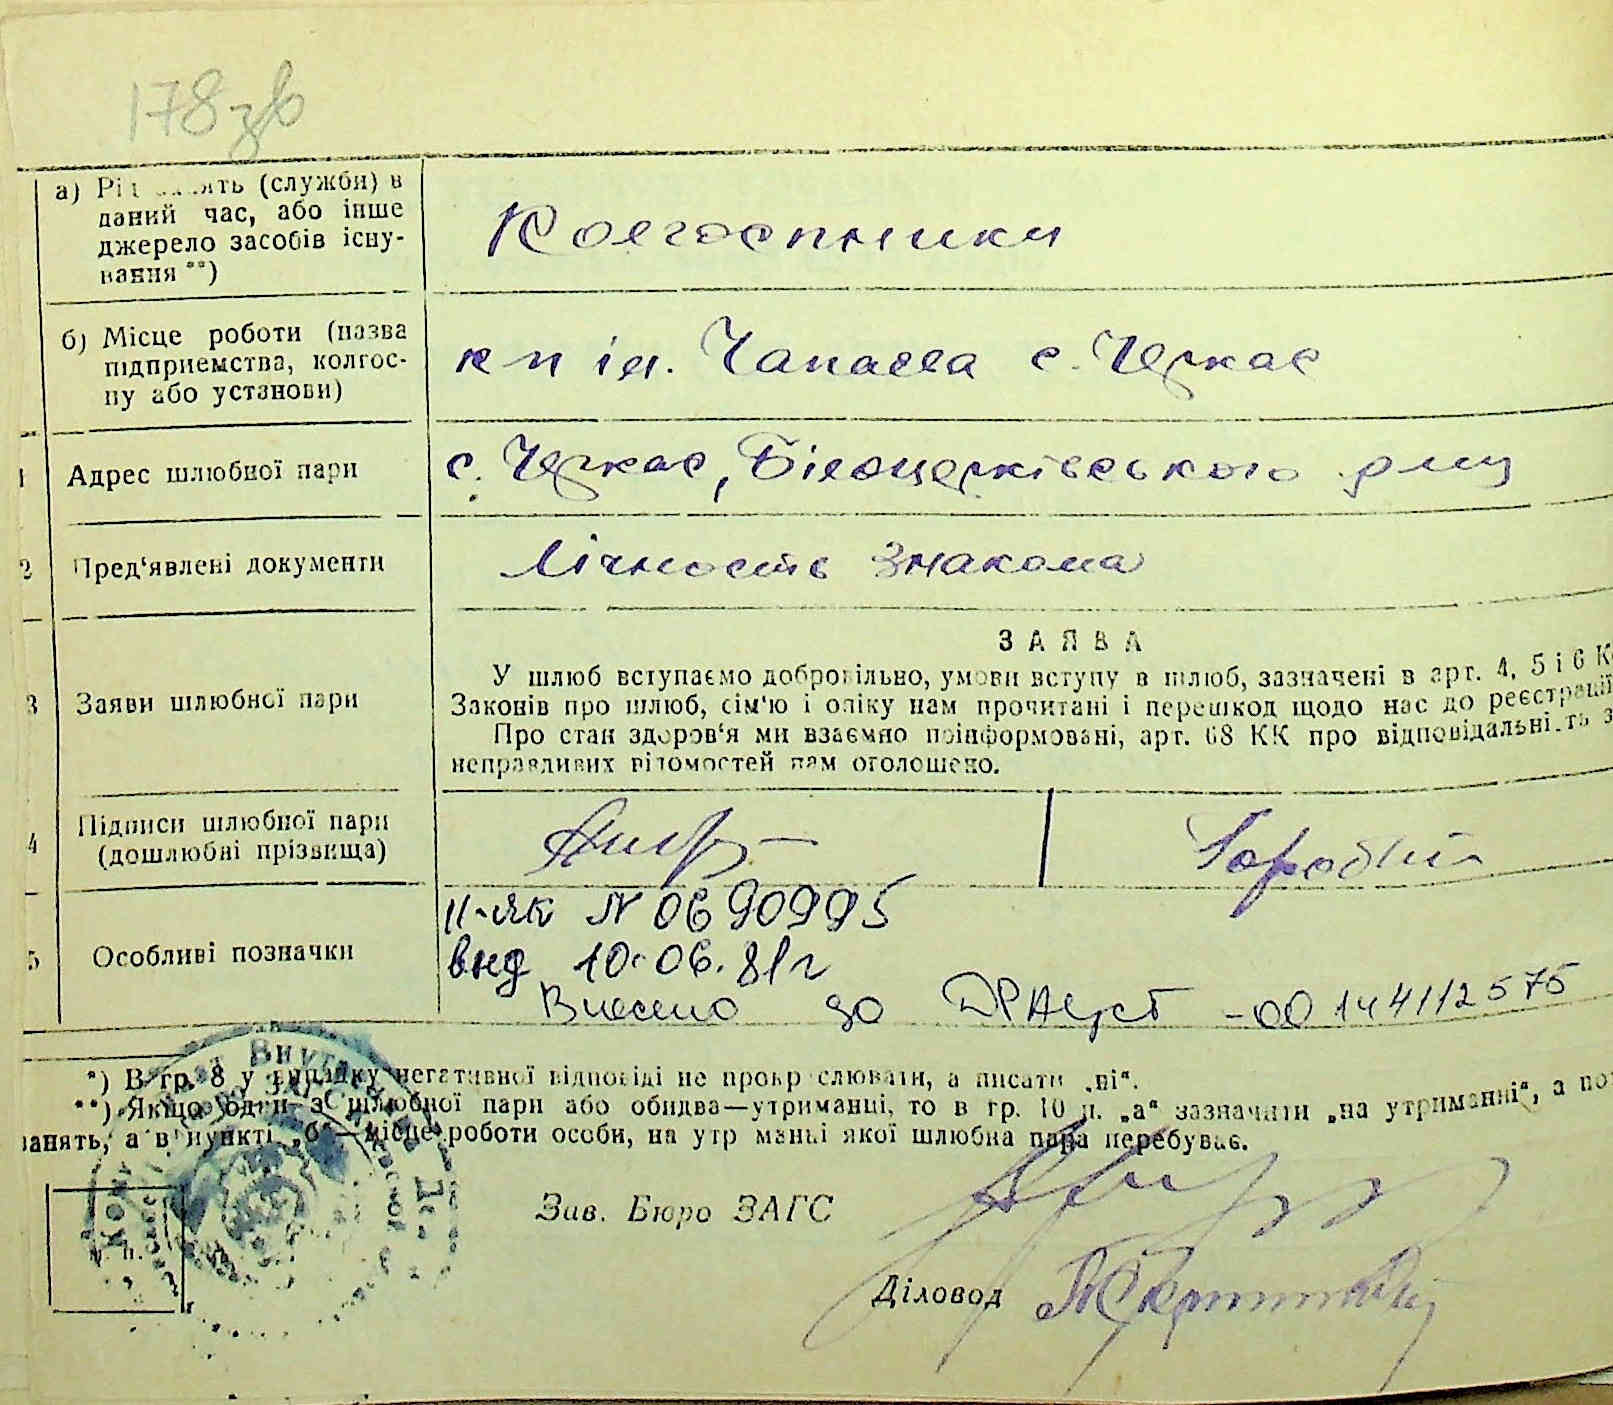 178 зв
а) Рід занять (служби) в
даний час, або інше
джерело засобів існу-
вання **)
Колгоспники
б) Місце роботи (назва
підприємства, колгос-
пу або установи)
к п ім. Чапаєва с. Черкас
1 Адрес шлюбної пари
с. Черкас, Білоцерківського р-ну
2 Пред‘явлені документи
Лічность знакома
3 Заяви шлюбної пари
ЗАЯВА
У шлюб вступаємо добровільно, умови вступу в шлюб, зазначені в арт. 4, 5 і 6 К
Законів про шлюб, сім‘ю і опіку нам прочитані і перешкод щодо нас до реєстрації
Про стан здоров‘я ми взаємно поінформовані, арт. 68 КК про відповідальність з
неправдивих відомостей нам оголошено.
4 Підписи шлюбної пари
(дошлюбні прізвища)
5 Особливі позначки
II-ЯК N 0690995
вид 10.06.81г
Внесено до ДРАЦСГ -00144112575
*) В гр. 8 у випадку негативної відповіді не прокреслювати, а писати „ні“.
**) Якщо один з шлюбної пари або обидва—утриманці, то в гр. 10 п. „а“ зазначити „на утриманні“, а по
занять, а в пункті „б“—місце роботи особи, на утриманні якої шлюбна пара перебуває.
м. п.
Зав. Бюро ЗАГС
Діловод